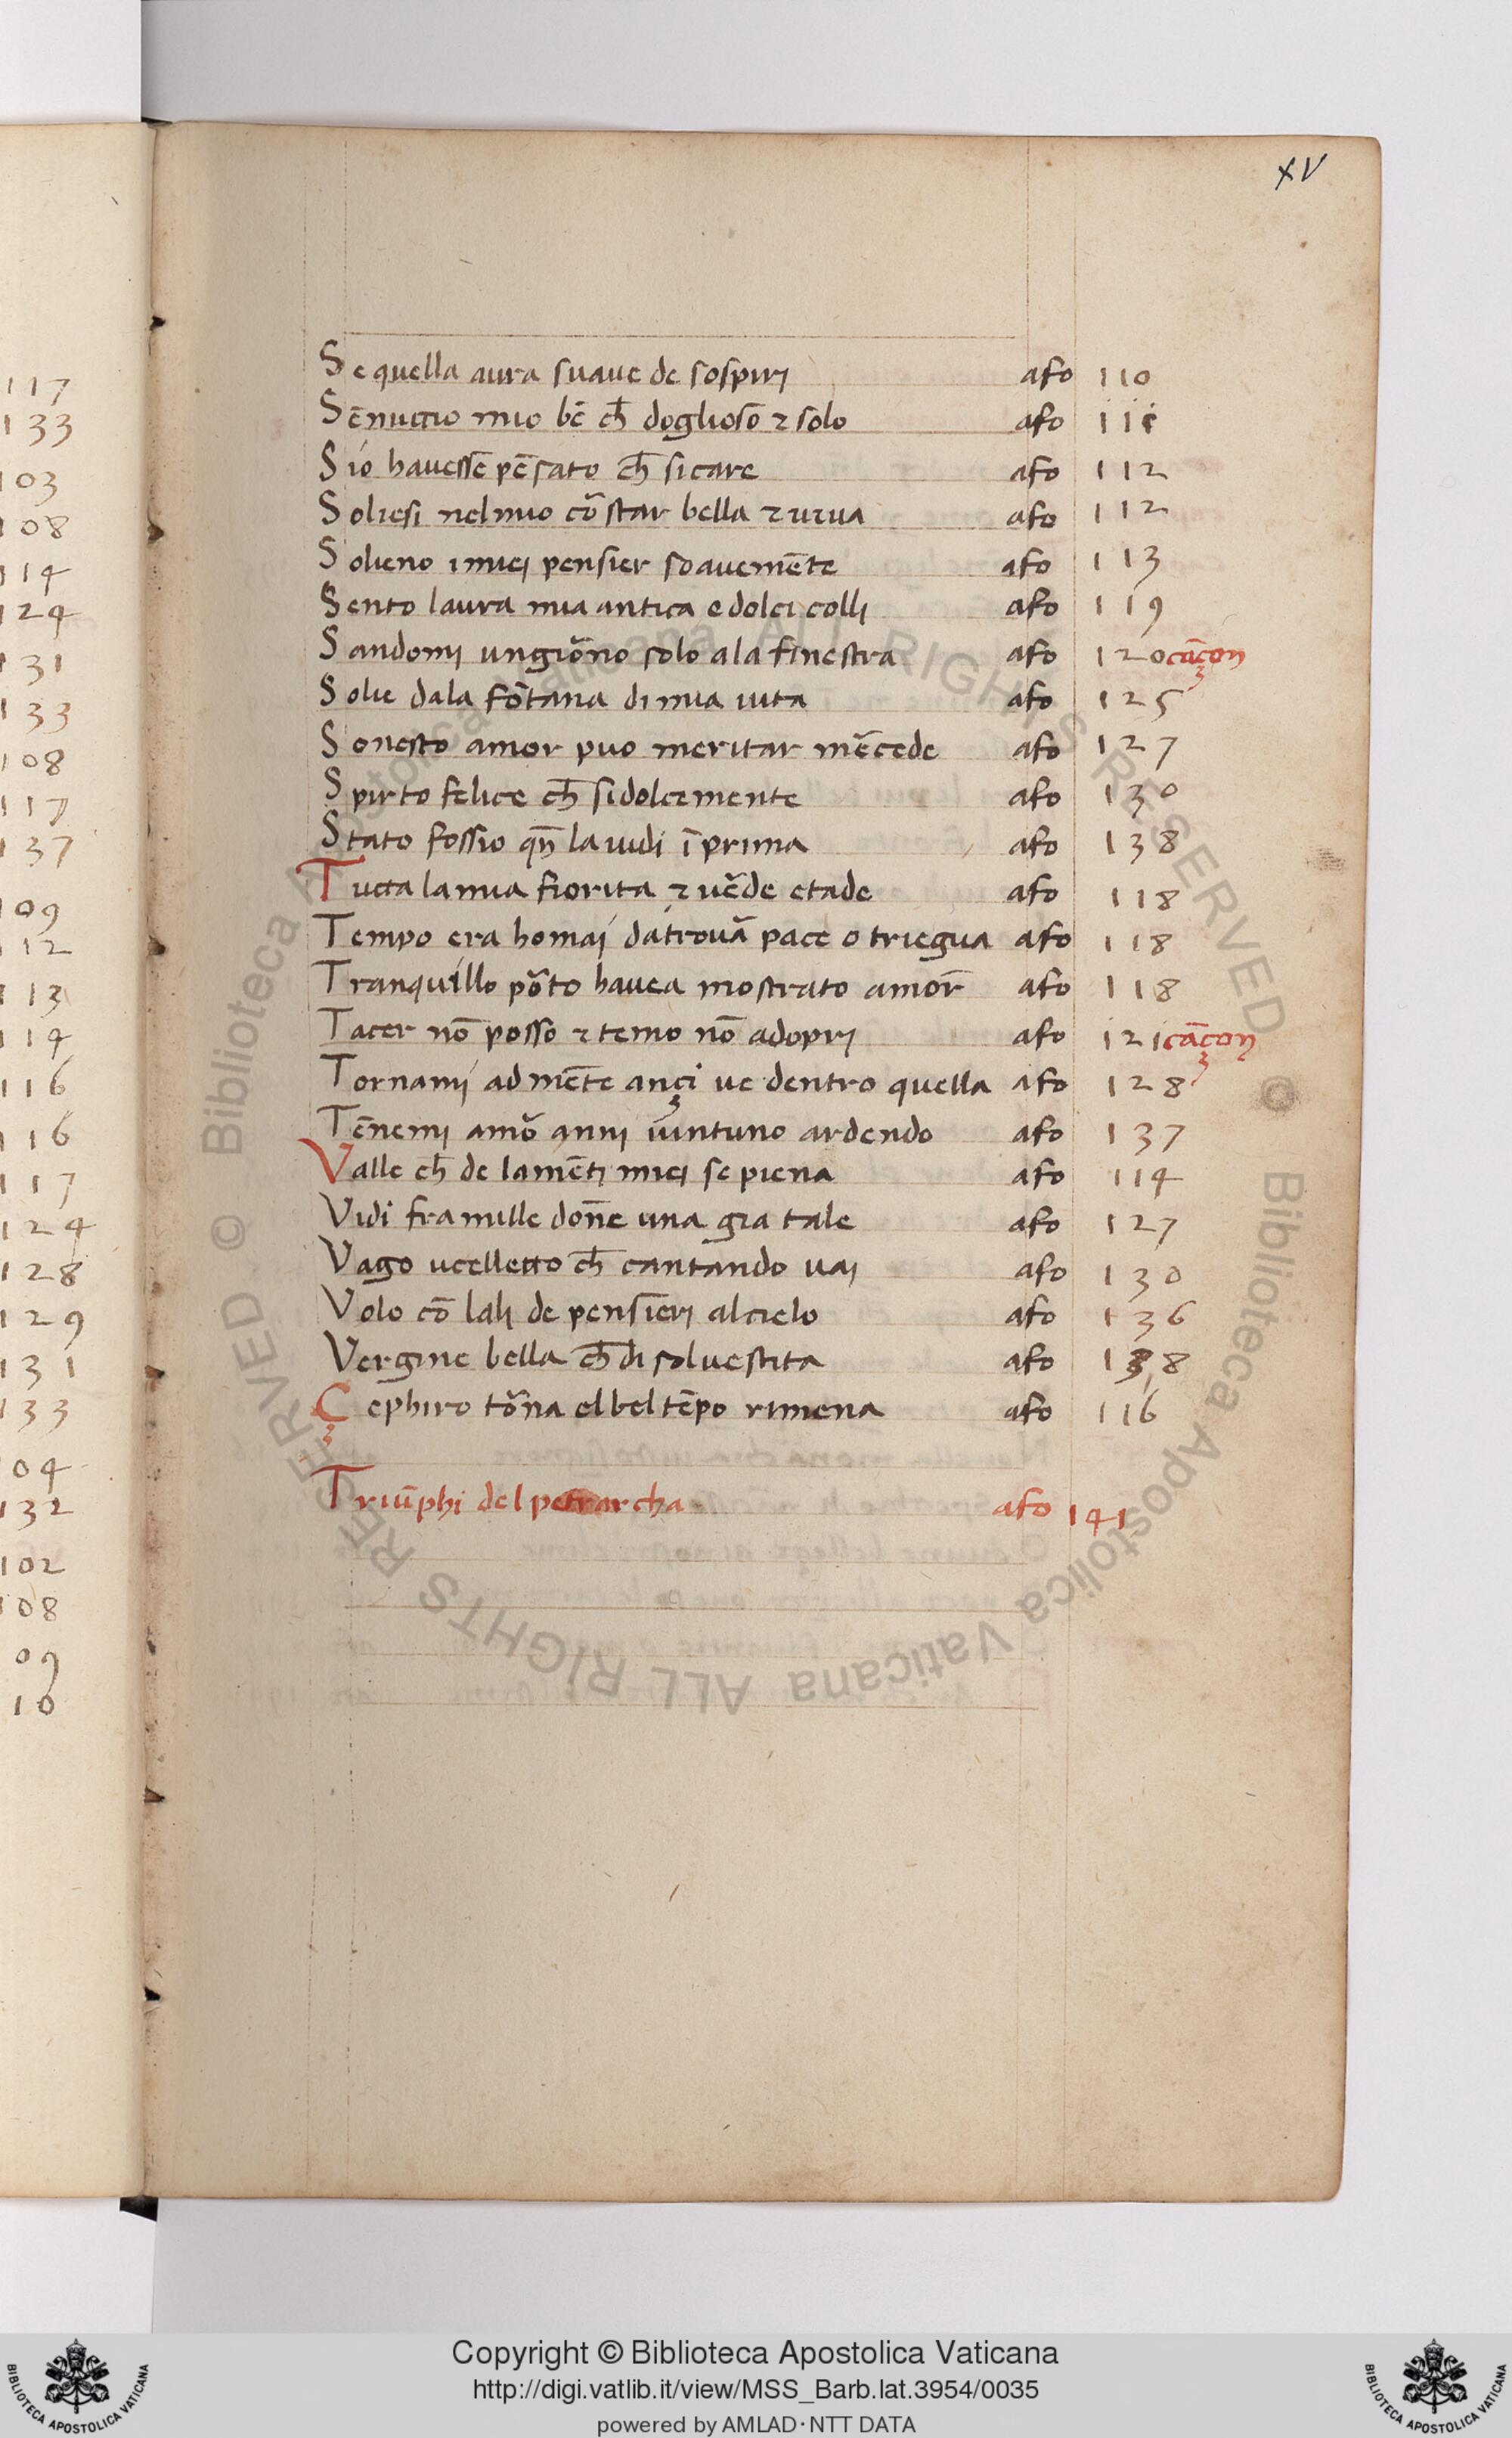 xv
117
133
103
108
114
124
131
133
108
117
137
109
112
113
114
116
116
117
124
128
129
131
133
104
132
102
108
09
10
Se quella aura suaue de sospirj afo 110
Sēnuccio mio bē ch̄ doglioso ⁊ solo afo 111
Sio hauesse pēsato ch̄ si care afo 112
Soliesi nel mio cōr star bella ⁊ uiua afo 112
Solieno i miej pensier soauemēte afo 113
Sento laura mia antica e dolci collj afo 119
Sandomj un giōrno solo a la finestra afo 120 cāçon
Solie dala fōtana di mia uita afo 125
Sonesto amor puo meritar mēcede afo 127
Spirto felice ch̄ si dolcemente afo 130
Stato fossio qn̄ la uidi ī prima afo 138
Tucta la mia fiorita ⁊ uēde etade afo 118
Tempo era homaj da trouā pace o triegua afo 118
Tranquillo pōto hauea mostrato amor̄ afo 118
Tacer nō posso ⁊ temo nō adoprj afo 121 cāçon
Tornamj ad mēte ançi ue dentro quella afo 128
Tēnemj amō annj uintuno ardendo afo 137
Valle ch̄ de lamētj miej se piena afo 114
Vidi fra mille don̄e una gra tale afo 127
Vago ucelletto ch̄ cantando uaj afo 130
Volo cō lalj de pensierj al cielo afo 136
Vergine bella ch̄ di sol uestita afo 138
Çephiro tōna el bel tēpo rimena afo 116
Triūphi del petrarcha afo 141
© Biblioteca Apostolica Vaticana ALL RIGHTS RESERVED © Biblioteca Apostolica Vaticana ALL RIGHTS RESERVED
Copyright © Biblioteca Apostolica Vaticana
http://digi.vatlib.it/view/MSS_Barb.lat.3954/0035
powered by AMLAD·NTT DATA
BIBLIOTECA APOSTOLICA VATICANA
BIBLIOTECA APOSTOLICA VATICANA